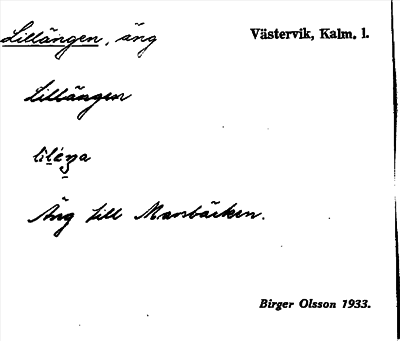 Lillängen, äng
Västervik, Kalm. l.
Lillängen
Äng till Mansbäcken.
Birger Olsson 1933.